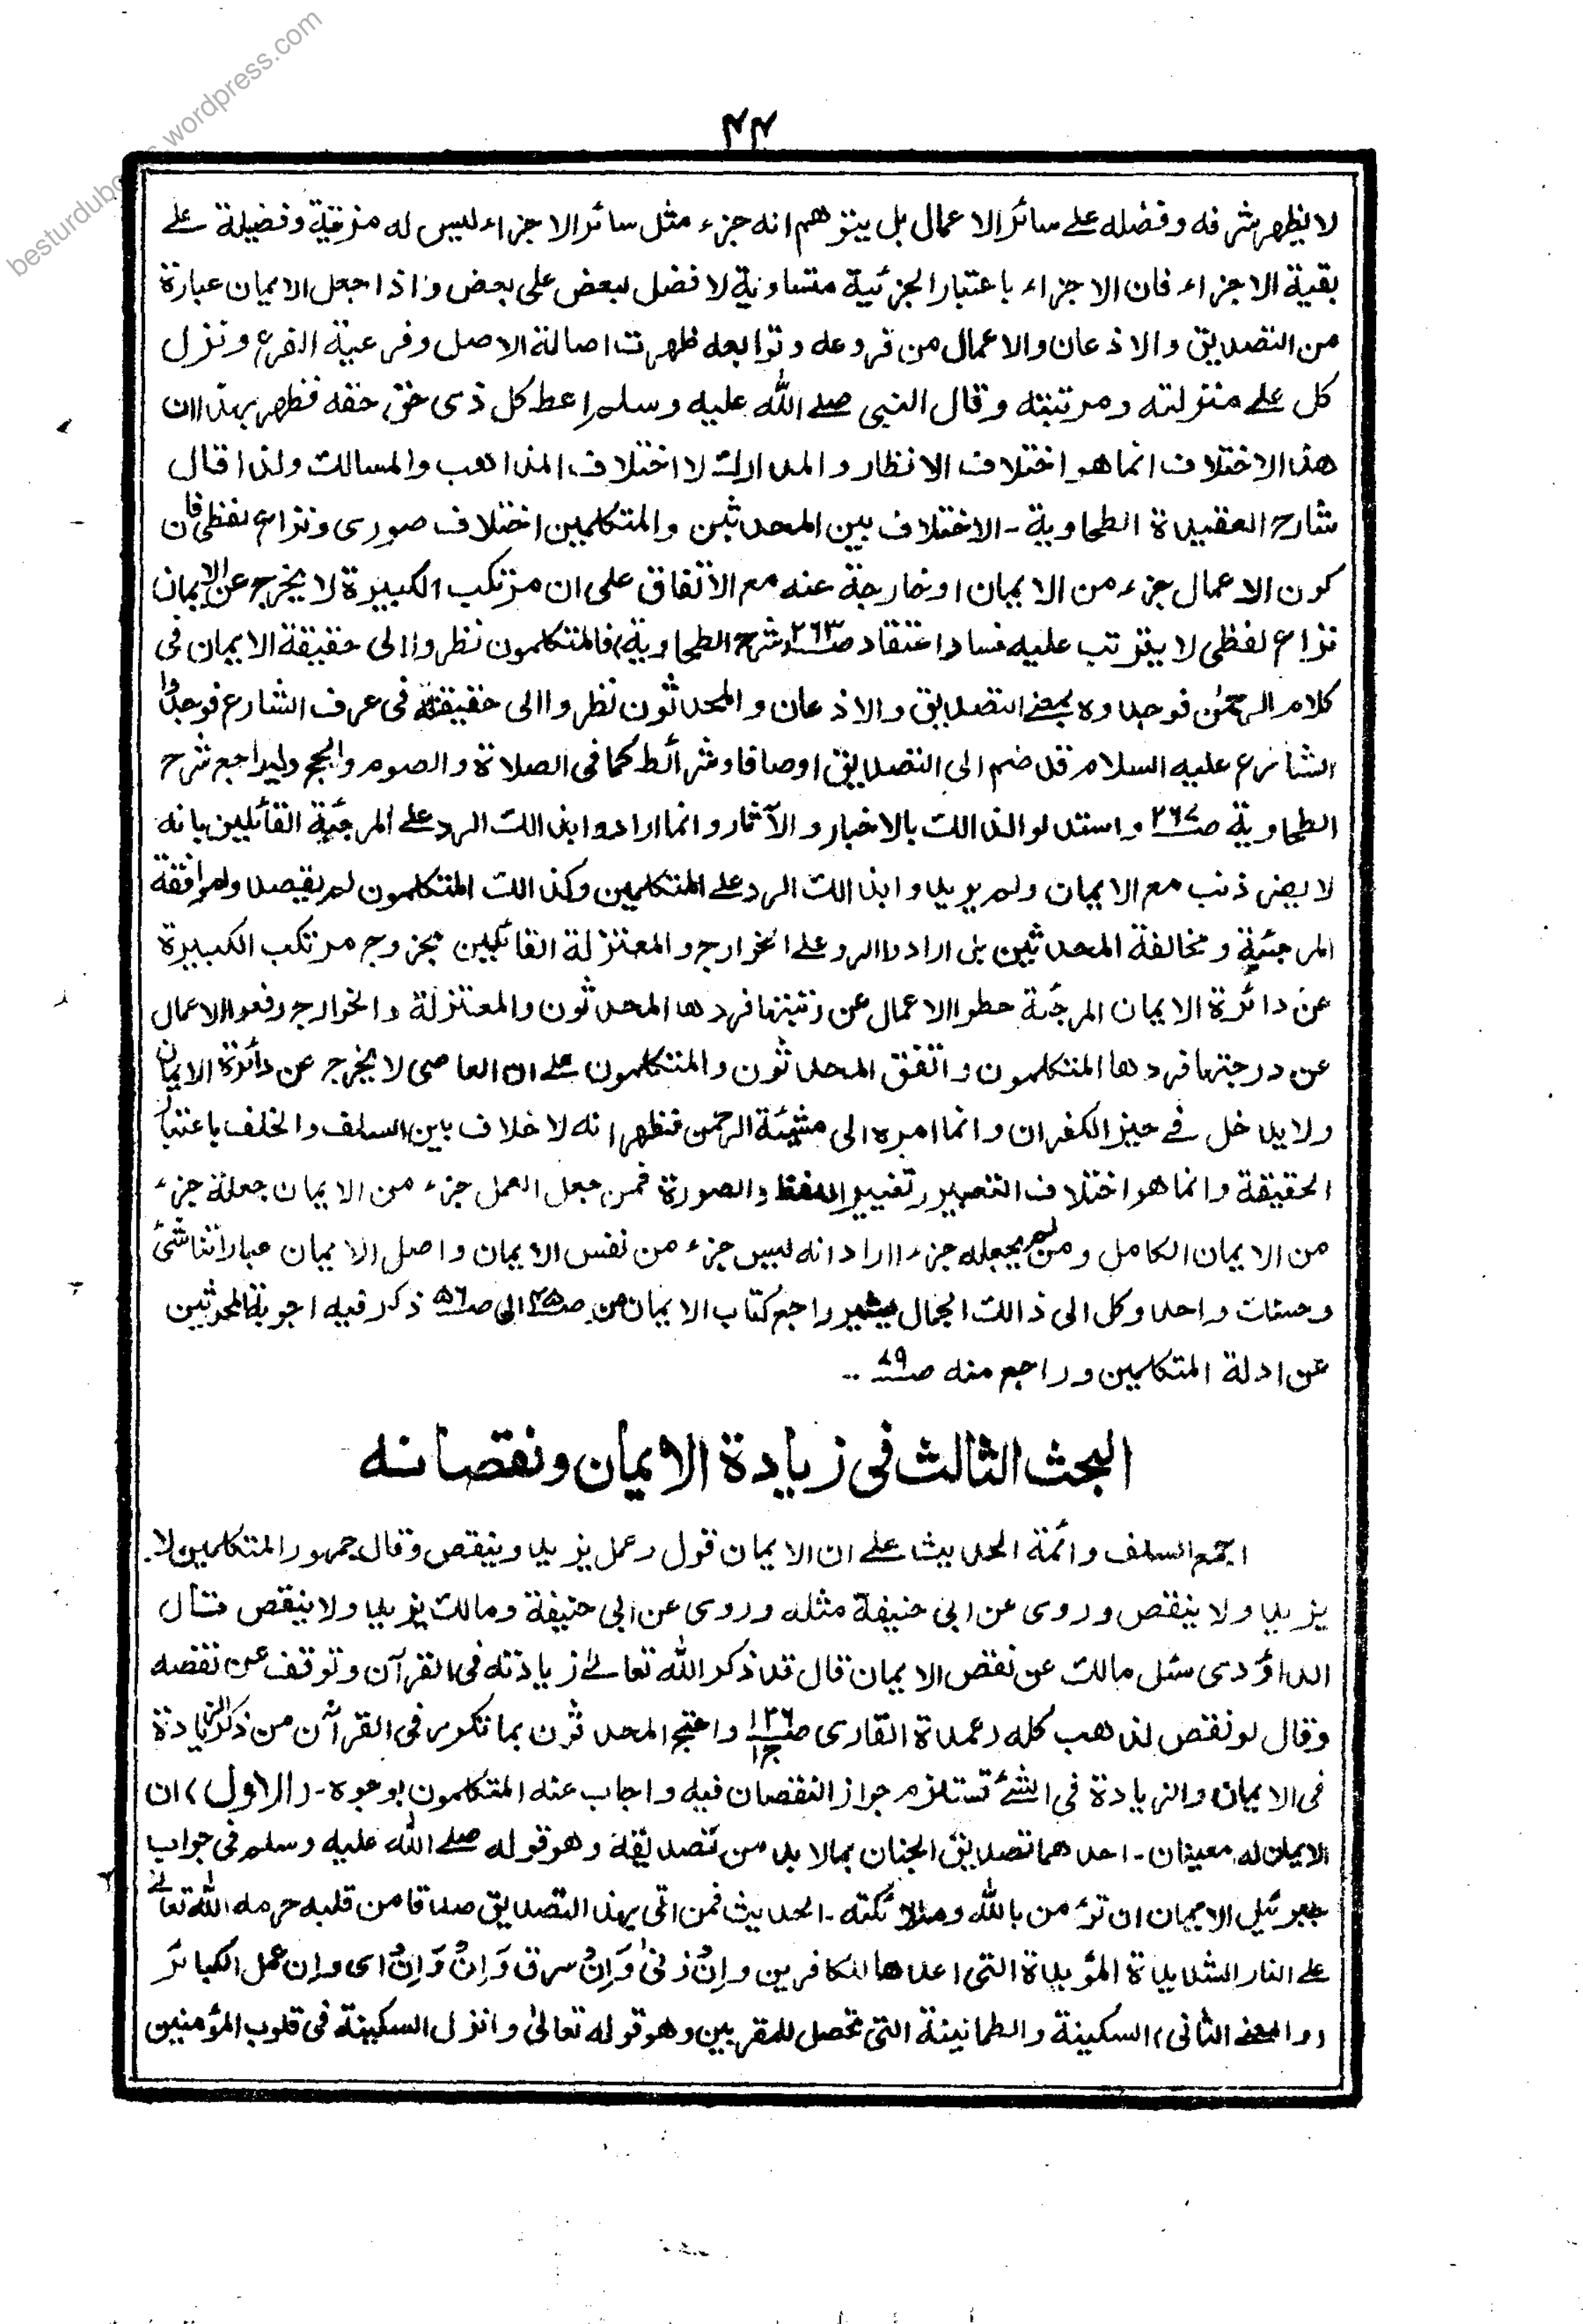 besturdubooks.wordpress.com
۴۴
لا يظهر شرفه وفضله على سائر الاعمال بل يتوهم انه جزء مثل سائر الاجزاء ليس له مزية وفضيلة على
بقية الاجزاء فان الاجزاء باعتبار الجزئية متساوية لا فضل لبعض على بعض واذا جعل الايمان عبارة
من التصديق والاذعان والاعمال من فروعه وتوابعه ظهرت اصالة الاصل وفرعية الفرع ونزل
كل على منزلته ومرتبته وقال النبى صلى الله عليه وسلم اعط كل ذى حق حقه فظهر بهذا ان
هذا الاختلاف انما هو اختلاف الانظار والمدارك لا اختلاف المذاهب والمسالك ولذا قال
شارح العقيدة الطحاوية - الاختلاف بين المحدثين والمتكلمين اختلاف صورى ونزاع لفظى فان
كون الاعمال جزء من الايمان او خارجة عنه مع الاتفاق على ان مرتكب الكبيرة لا يخرج عن الايمان
نزاع لفظى لا يترتب عليه فساد اعتقاد صـ۲۶۳ شرح الطحاوية) فالمتكلمون نظروا الى حقيقة الايمان فى
كلام الرحمن فوجدوه بمعنى التصديق والاذعان والمحدثون نظروا الى حقيقته فى عرف الشارع فوجدوا
الشارع عليه السلام قد ضم الى التصديق اوصافا وشرائط كما فى الصلاة والصوم والحج وليراجع شرح
الطحاوية صـ۲۶۷ واستدلوا لذالك بالاخبار والآثار وانما ارادوا بذالك الرد على المرجئة القائلين بانه
لا يضر ذنب مع الايمان ولم يريدوا بذالك الرد على المتكلمين وكذالك المتكلمون لم يقصدوا موافقة
المرجئة ومخالفة المحدثين بل ارادوا الرد على الخوارج والمعتزلة القائلين بخروج مرتكب الكبيرة
عن دائرة الايمان المرجئة حطوا الاعمال عن رتبتها فردها المحدثون والمعتزلة والخوارج رفعوا الاعمال
عن درجتها فردها المتكلمون واتفق المحدثون والمتكلمون على ان العاصى لا يخرج عن دائرة الايمان
ولا يدخل فى حيز الكفران وانما امره الى مشيئة الرحمن فظهر انه لا خلاف بين السلف والخلف باعتبار
الحقيقة وانما هو اختلاف التعبير وتغيير اللفظ والصورة فمن جعل العمل جزء من الايمان جعله جزء
من الايمان الكامل ومن لم يجعله جزء اراد انه ليس جزء من نفس الايمان واصل الايمان عباراتنا شتى
وحسنك واحد وكل الى ذالك الجمال يشير راجع كتاب الايمان من صـ۴۵ الى صـ۵۶ ذكر فيه اجوبة المحدثين
عن ادلة المتكلمين وراجع منه صـ۸۹ ..
البحث الثالث فى زيادة الايمان ونقصانه
اجمع السلف وائمة الحديث على ان الايمان قول وعمل يزيد وينقص وقال جمهور المتكلمين لا
يزيد ولا ينقص وروى عن ابى حنيفة مثله وروى عن ابى حنيفة ومالك يزيد ولا ينقص قال
الداؤدى سئل مالك عن نقص الايمان قال قد ذكر الله تعالى زيادته فى القرآن وتوقف عن نقصه
وقال لو نقص لذهب كله (عمدة القارى صـ۱۲۶ ج۱ واحتج المحدثون بما تكرر فى القرآن من ذكر الزيادة
فى الايمان والزيادة فى الشئ تستلزم جواز النقصان فيه واجاب عنه المتكلمون بوجوه - (الاول) ان
الايمان له معنيان - احدهما تصديق الجنان بما لابد من تصديقه وهو قوله صلى الله عليه وسلم فى جواب
جبرئيل الايمان ان تؤمن بالله وملائكته - الحديث فمن اتى بهذا التصديق صدقا من قلبه حرمه الله تعالى
على النار الشديدة المؤبدة التى اعدها للكافرين وَاِنْ زنىٰ وَاِنْ سرق وَاِنْ وَاِنْ اى وان عمل الكبائر
(والمعنى الثانى) السكينة والطمانينة التى تحصل للمقربين وهو قوله تعالىٰ وانزل السكينة فى قلوب المؤمنين